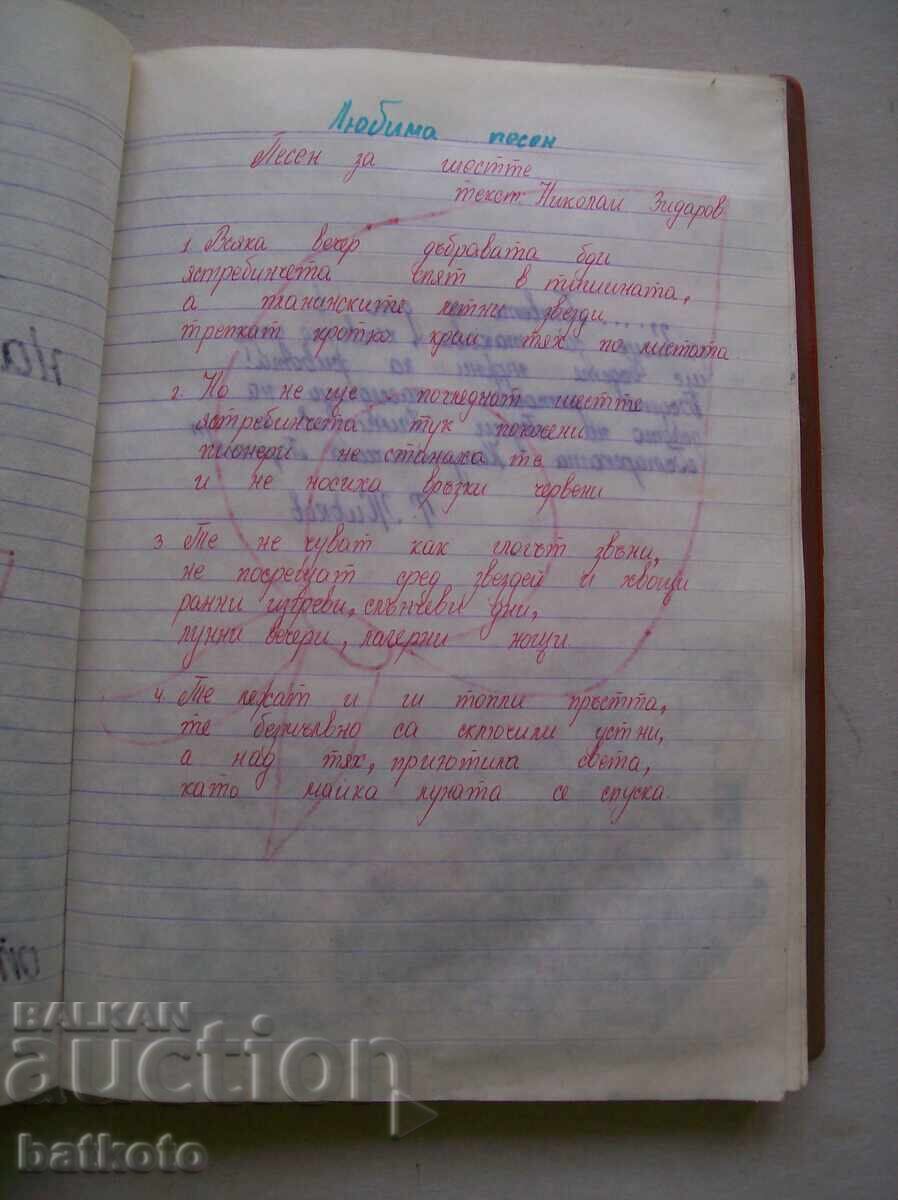 Любима песен
Песен за шестте
текст: Николай Зидаров
1. Всяка вечер дъбравата бди
ястребинчета спят в тишината,
а планинските летни звезди
трепкат кротко край тях по листата.
2. Но не ще погледнат шестте
ястребинчета тук покосени
пионери не станаха те
и не носиха връзки червени
3. Те не чуват как гласът звъни,
не посрещат сред звездей и хвощи
ранни изгреви, слънчеви дни,
лунни вечери, лагерни нощи.
4. Те лежат и ги топли пръстта,
те безмълвно са сключили устни,
а над тях, притопила света,
като майка луната се спуска.
На
от
BALKAN
auction
batkoto